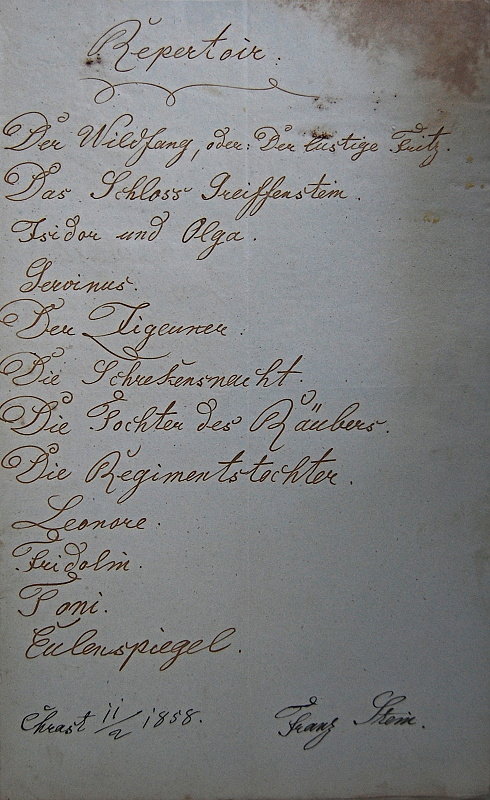 Repertoir.
Der Wildfang, oder: Der lustige Fritz.
Das Schloss Greiffenstein.
Isidor und Olga.
Gervinus.
Der Zigeuner.
Die Schrekensnacht.
Die Tochter des Räubers.
Die Regimentstochter.
Leonore.
Fridolin.
Toni.
Eulenspiegel.
Chrast 11/2 1858. Franz Stein.